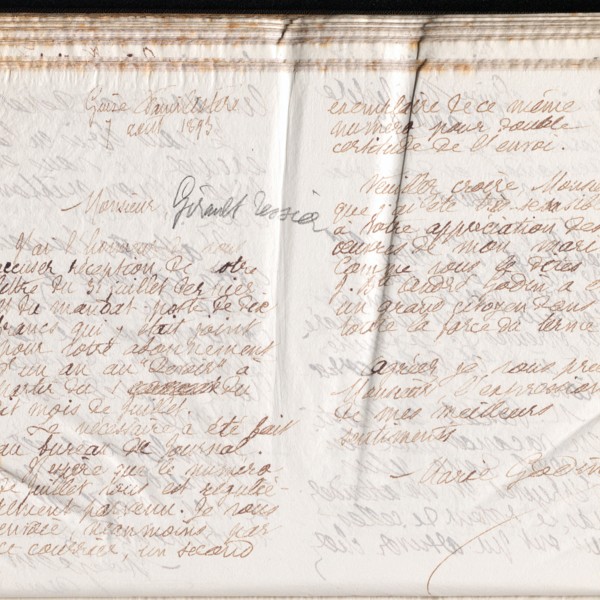 Guise Familistère
7 août 1893
Monsieur Girault Tessier
J'ai l'honneur de vous
accuser réception de votre
lettre du 31 juillet dernier
et du mandat-poste de dix
francs qui y était joint
pour votre abonnement
d'un an au "Devoir" à
partir du 1er du
dit mois de juillet.
Le nécessaire a été fait
au bureau du journal.
J'espère que le numéro
de juillet vous est réguliè-
rement parvenu. Je vous
envoie néanmoins par
ce courrier, un second
exemplaire de ce même
numéro pour double
certitude de l'envoi.
Veuillez croire Monsieur
que j'ai été très sensible
à votre appréciation des
œuvres de mon mari
Comme vous le dites
J. Bte André Godin a été
un grand citoyen dans
toute la force du terme
Agréez, je vous prie
Monsieur l'expression
de mes meilleurs
sentiments
Marie Godin